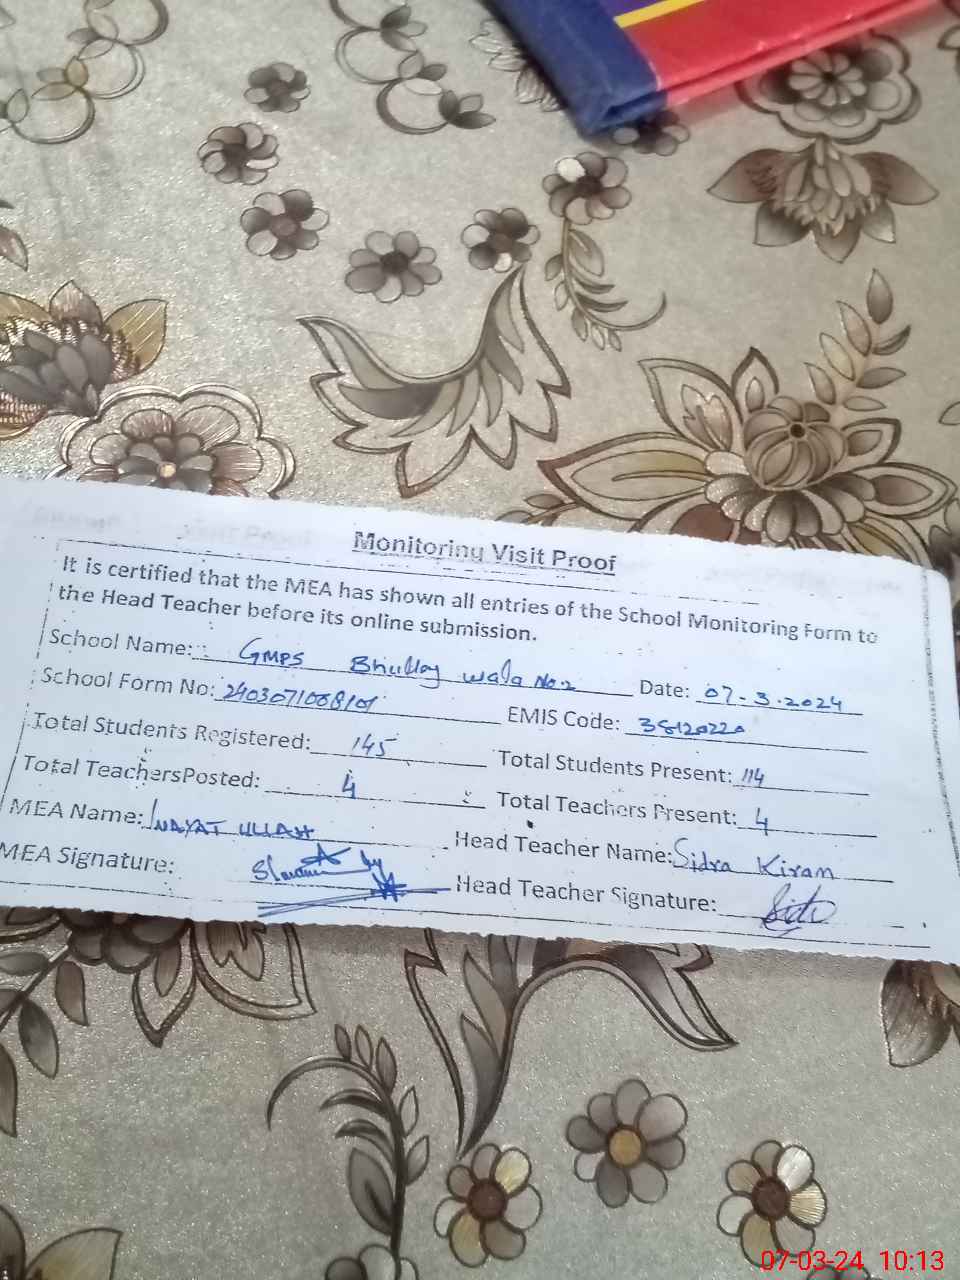 Monitoring Visit Proof
It is certified that the MEA has shown all entries of the School Monitoring Form to
the Head Teacher before its online submission.
School Name: GMPS Bhullay wala No.2 Date: 07-3-2024
School Form No: 2403071008101 EMIS Code: 38120220
Total Students Registered: 145 Total Students Present: 114
Total TeachersPosted: 4 Total Teachers Present: 4
MEA Name: INAYAT ULLAH Head Teacher Name: Sidra Kiran
MEA Signature: Head Teacher Signature:
07-03-24 10:13